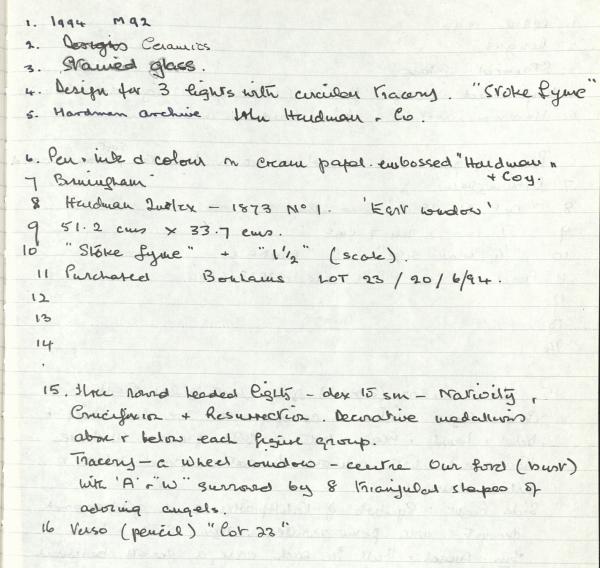 1. 1994 M92
2. Designs Ceramics
3. Stained glass.
4. Design for 3 lights with circular tracery. "Stoke Lyne"
5. Hardman archive John Hardman & Co.
6. Pen & ink & colour on cream paper embossed "Hardman
7 Birmingham" & Coy.
8 Hardman Index – 1873 No 1. 'East window'
9 51.2 cms x 33.7 cms.
10 "Stoke Lyne" + "1½" (scale).
11 Purchased Bonhams LOT 23 / 20/6/94.
12
13
14
15. Three round headed lights – dex to sin – Nativity,
Crucifixion + Resurrection. Decorative medallions
above & below each figure group.
Tracery – a wheel window – centre Our Lord (bust)
with 'A' & "W" surround by 8 triangular shapes of
adoring angels.
16 Verso (pencil) "Lot 23"